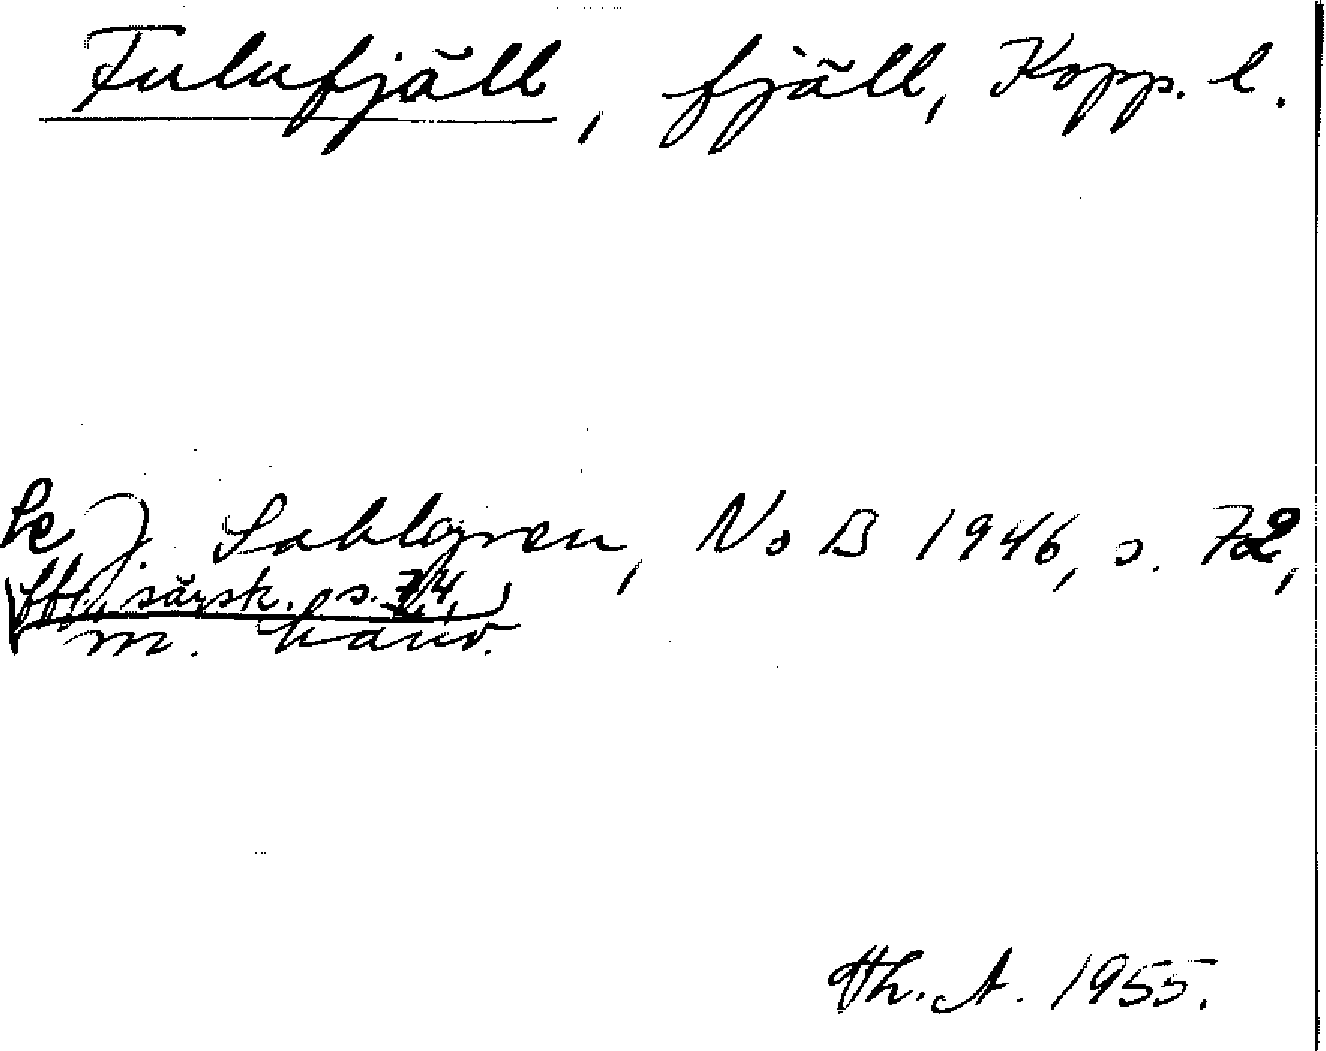 Fulufjäll, fjäll, Kopp. l.
Se J. Sahlgren, NoB 1946, s. 72,
ff., särsk. s. 74,
m. hänv.
Th. A. 1955.